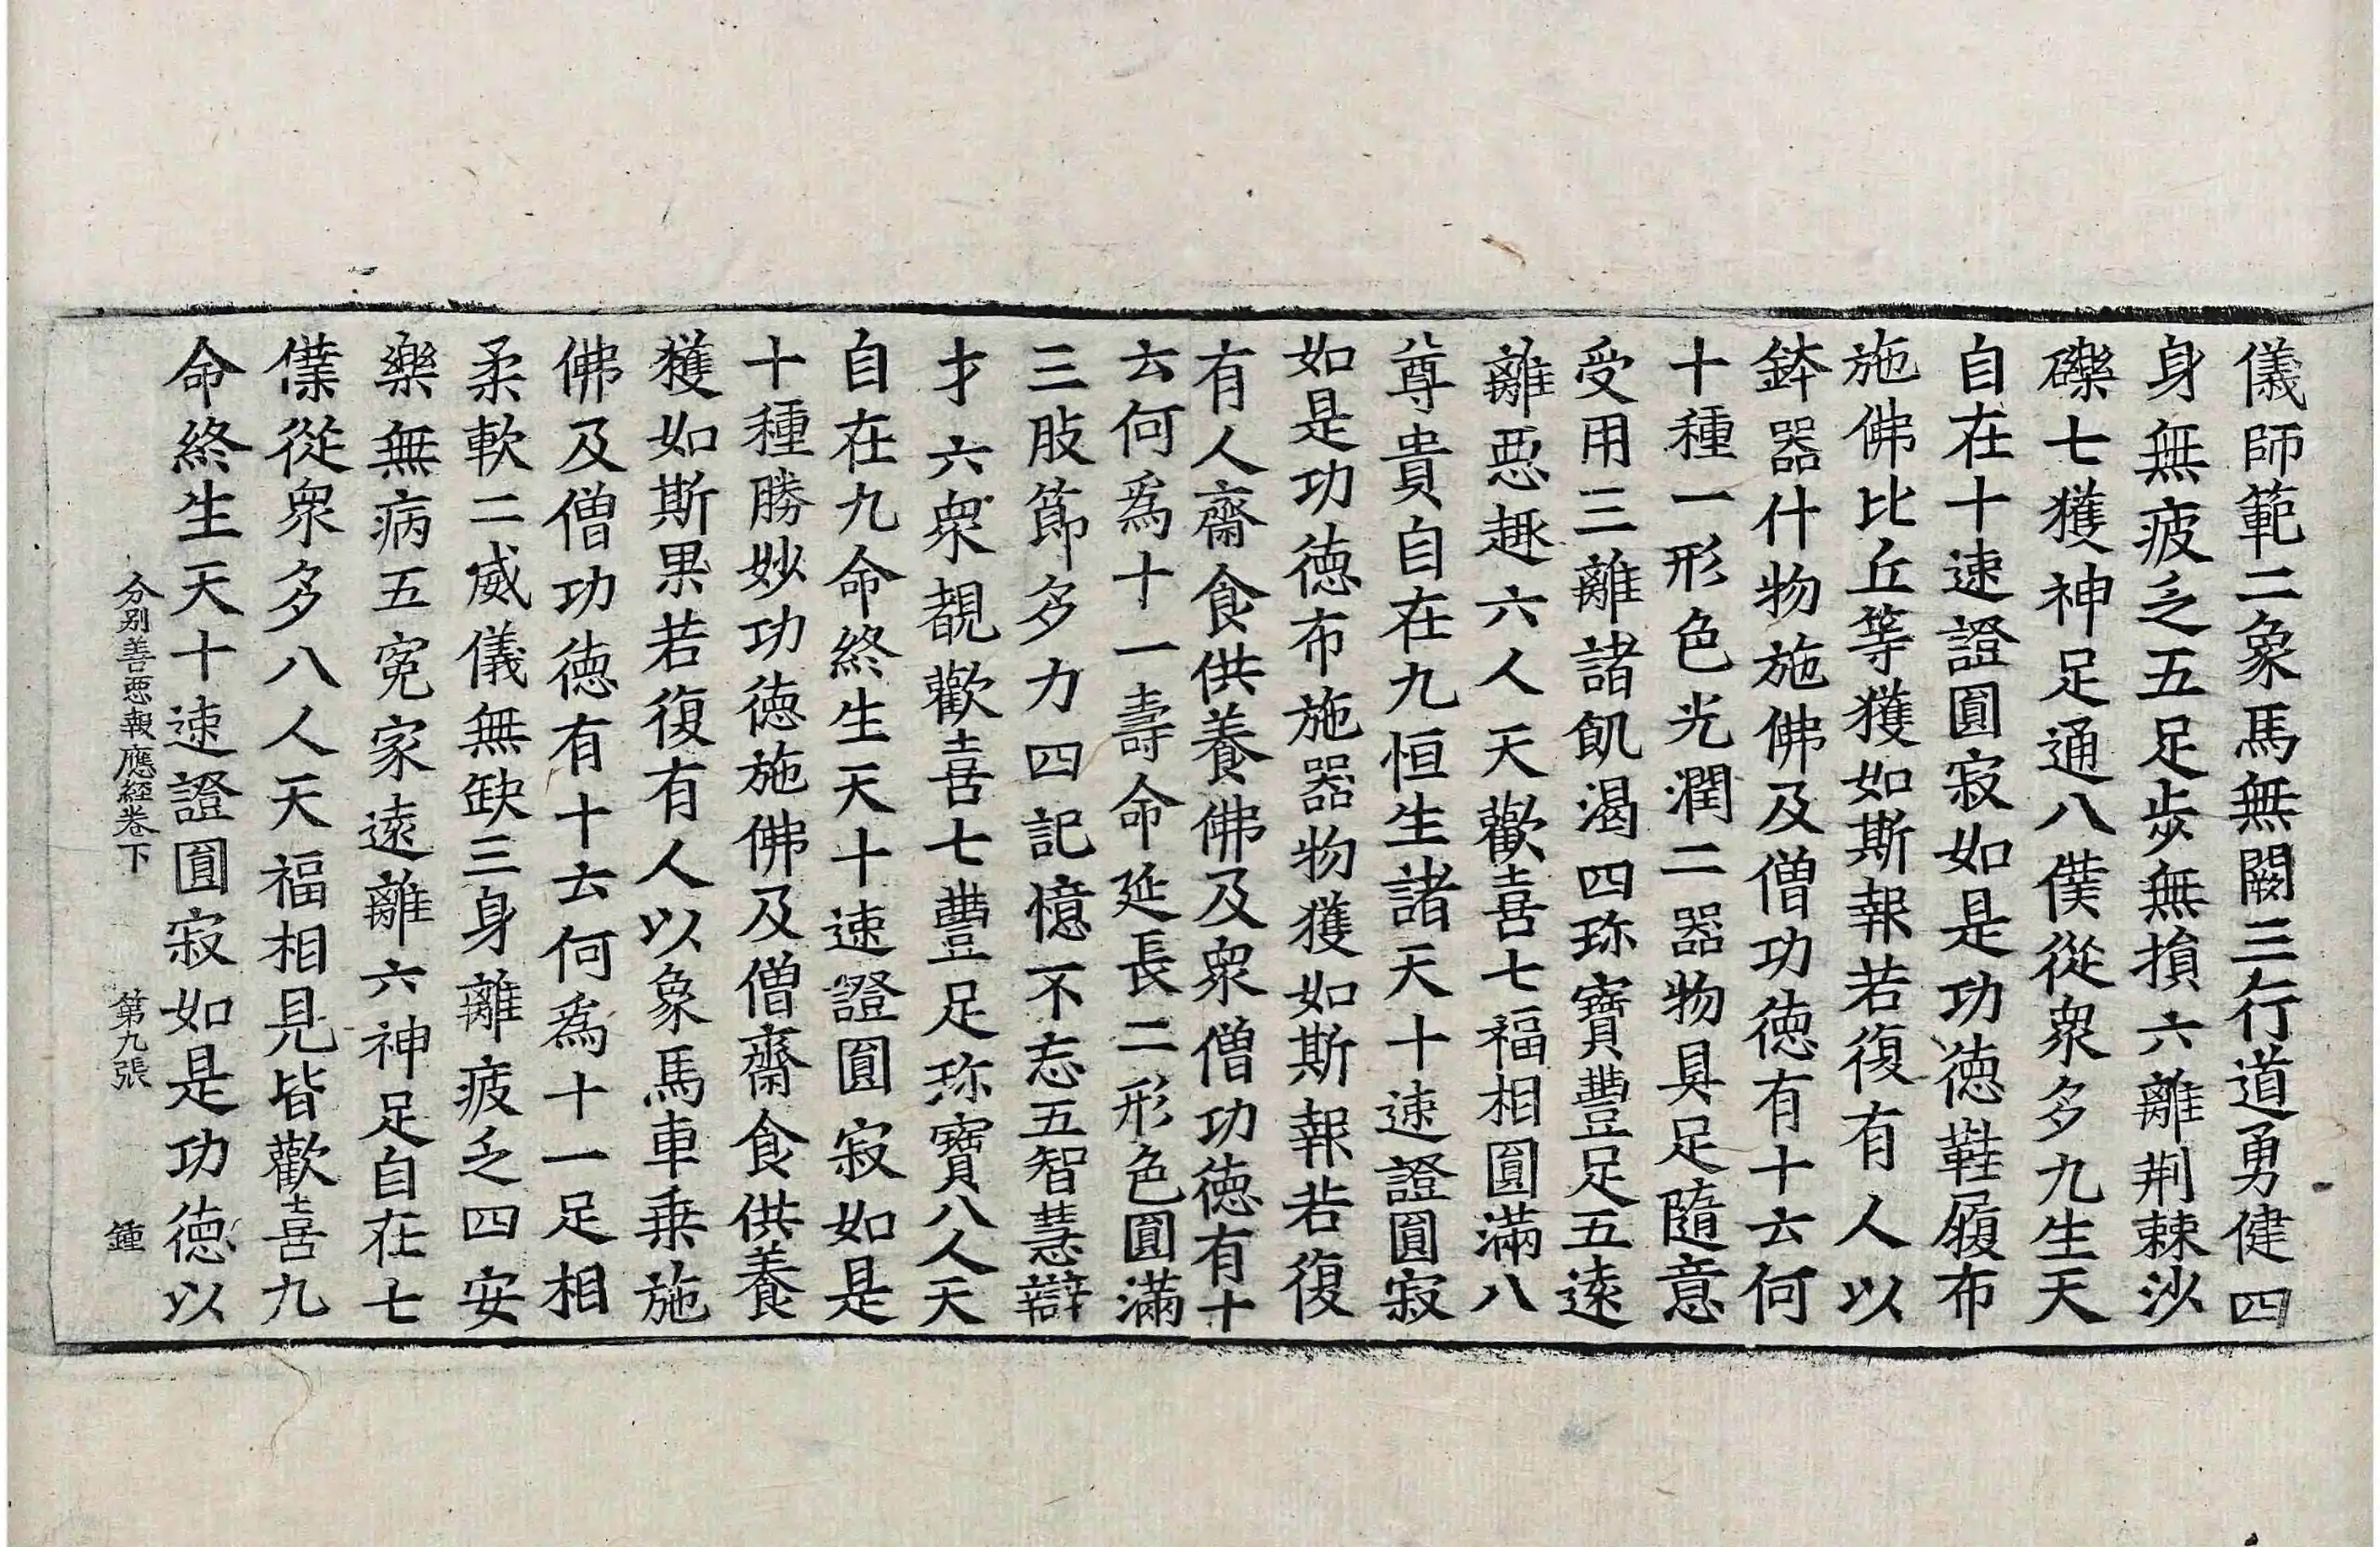 儀師範二象馬無闕三行道勇健四
身無疲乏五足步無損六離荆棘沙
礫七獲神足通八僕從衆多九生天
自在十速證圓寂如是功德鞋履布
施佛比丘等獲如斯報若復有人以
鉢器什物施佛及僧功德有十云何
十種一形色光潤二器物具足隨意
受用三離諸飢渴四珎寶豐足五遠
離惡趣六人天歡喜七福相圓滿八
尊貴自在九恒生諸天十速證圓寂
如是功德布施器物獲如斯報若復
有人齋食供養佛及衆僧功德有十
云何爲十一壽命延長二形色圓滿
三肢節多力四記憶不忘五智慧辯
才六衆覩歡喜七豐足珎寶八人天
自在九命終生天十速證圓寂如是
十種勝妙功德施佛及僧齋食供養
獲如斯果若復有人以象馬車乗施
佛及僧功德有十云何爲十一足相
柔軟二威儀無缺三身離疲乏四安
樂無病五寃家遠離六神足自在七
僕從衆多八人天福相見皆歡喜九
命終生天十速證圓寂如是功德以
分别善惡報應經卷下 第九張 鍾